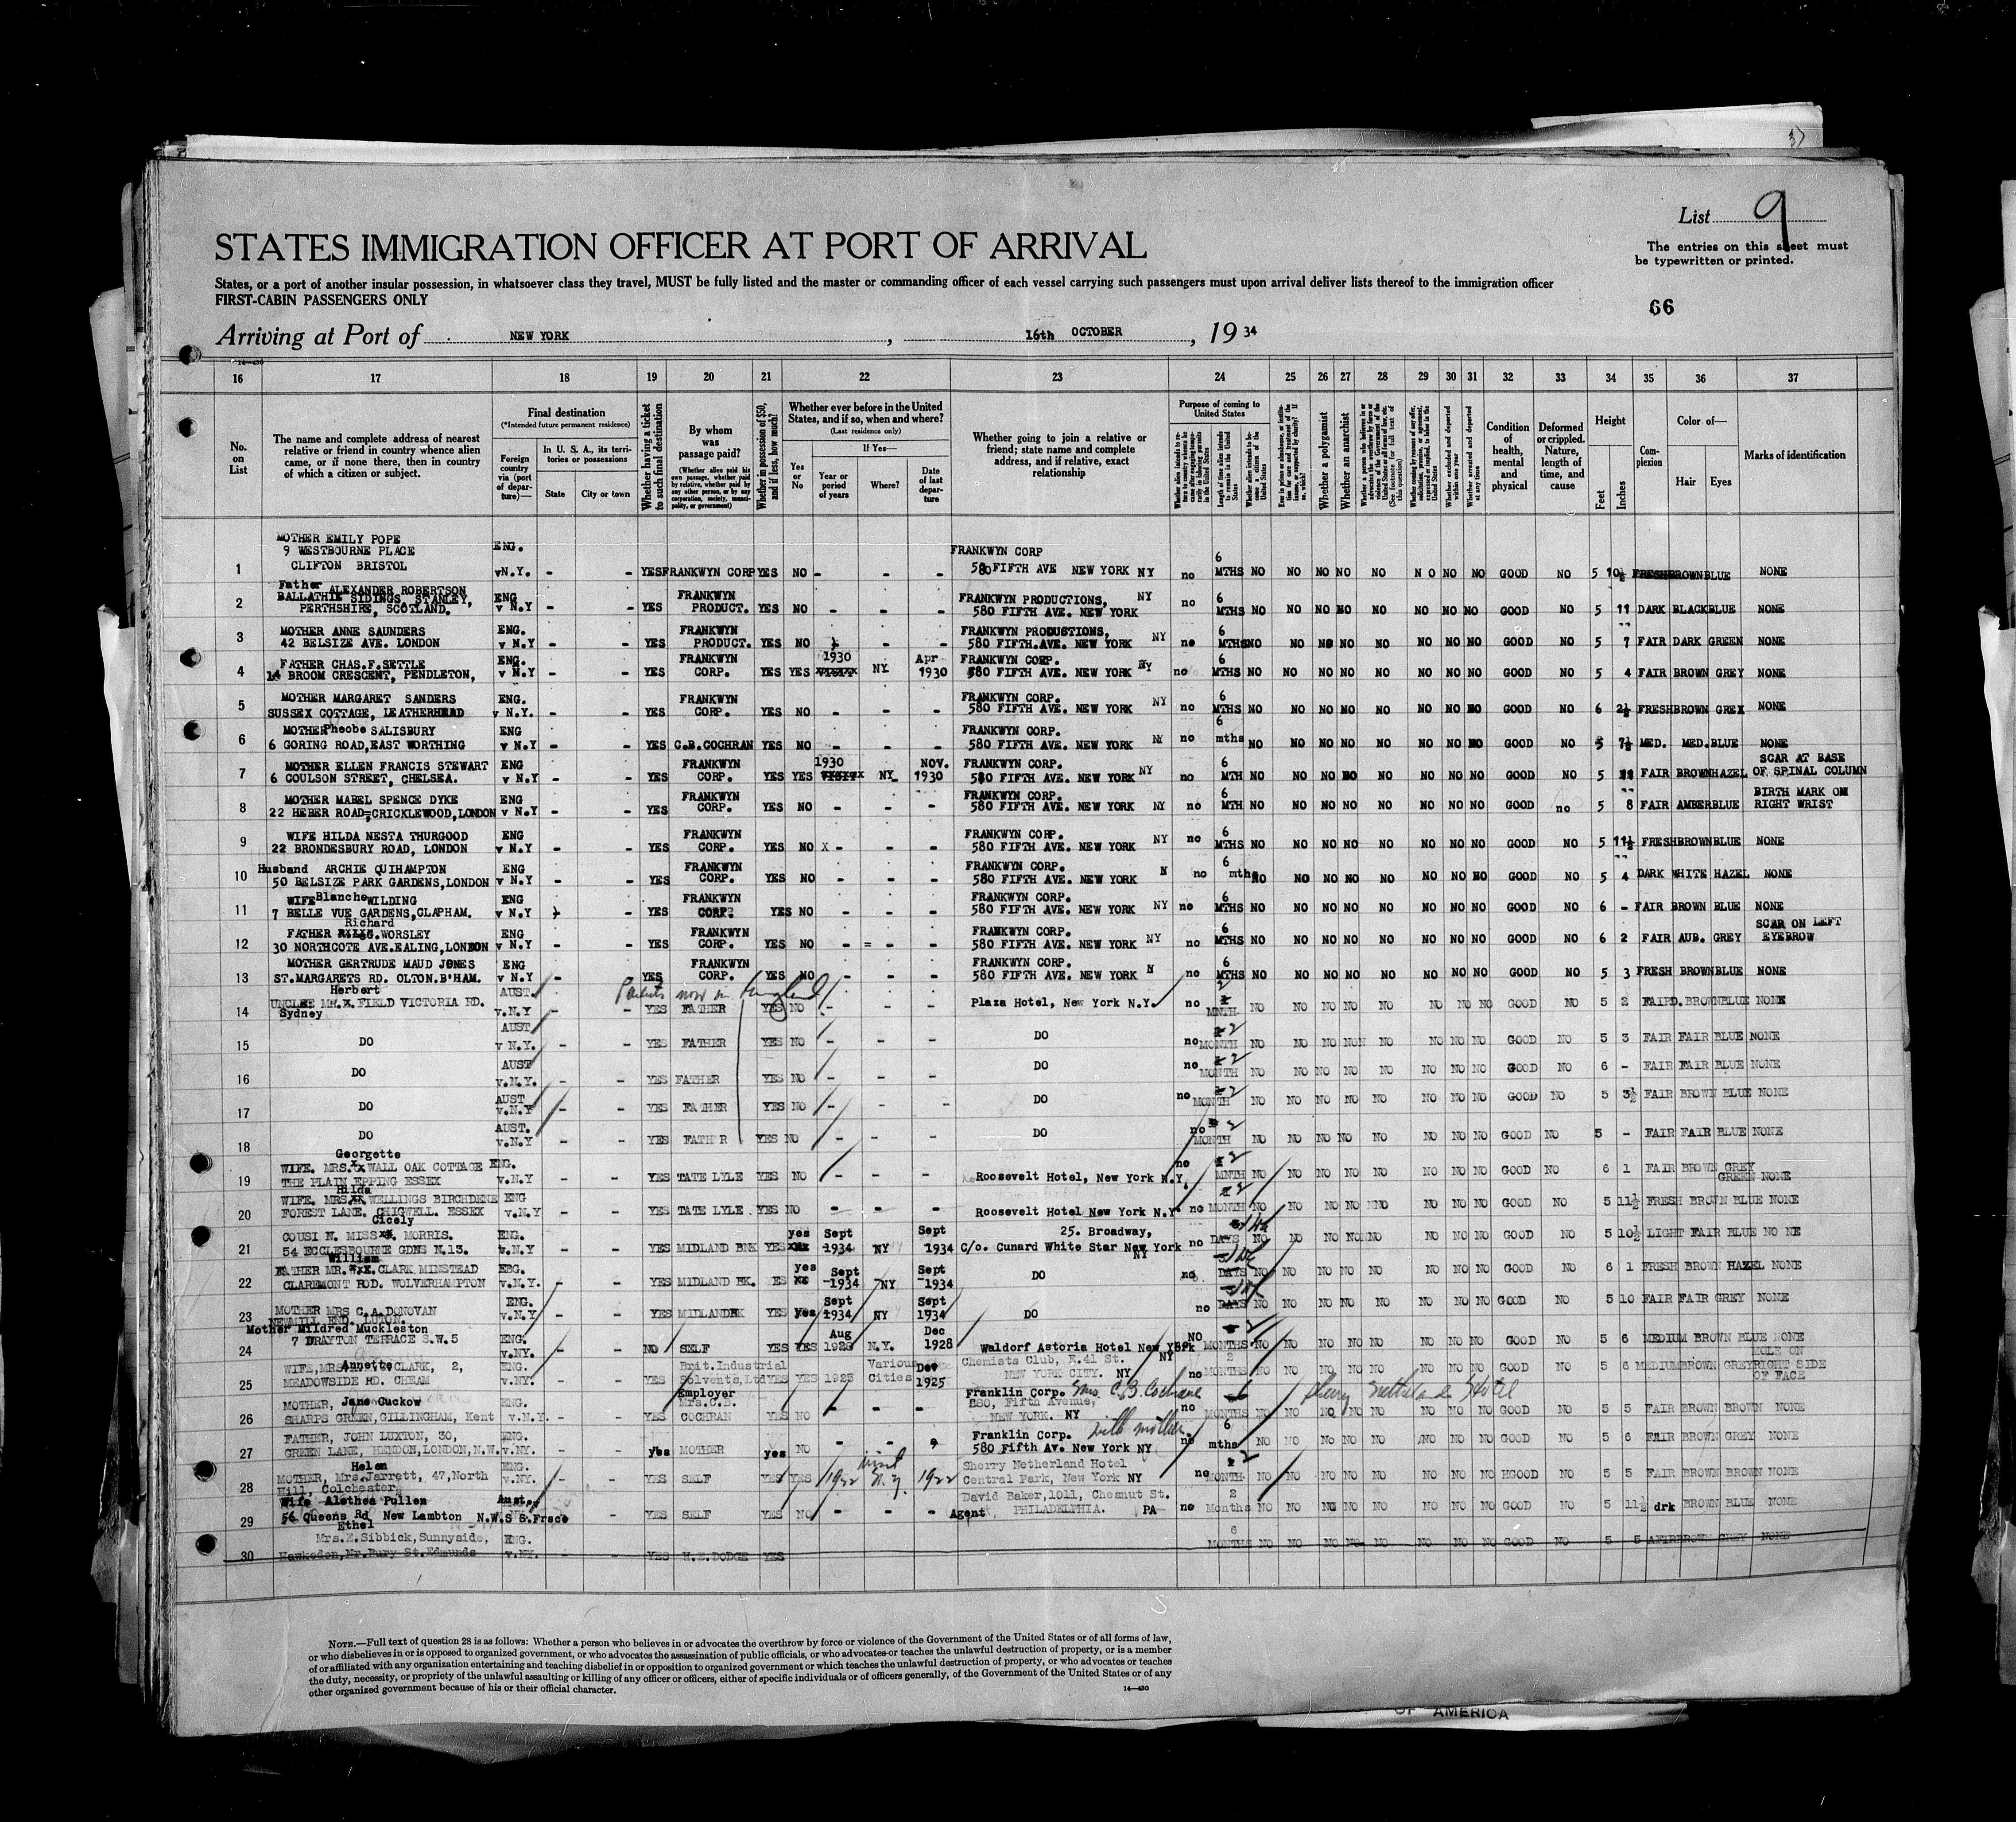 37
List 9
STATES IMMIGRATION OFFICER AT PORT OF ARRIVAL
The entries on this sheet must
be typewritten or printed.
States, or a port of another insular possession, in whatsoever class they travel, MUST be fully listed and the master or commanding officer of each vessel carrying such passengers must upon arrival deliver lists thereof to the immigration officer
FIRST-CABIN PASSENGERS ONLY
66
Arriving at Port of NEW YORK, 16th OCTOBER, 19 34
14-430
16 17 18 19 20 21 22 23 24 25 26 27 28 29 30 31 32 33 34 35 36 37
No. on List
The name and complete address of nearest relative or friend in country whence alien came, or if none there, then in country of which a citizen or subject.
Final destination
(*Intended future permanent residence)
Foreign country via (port of departure)—
In U. S. A., its territories or possessions
State
City or town
Whether having a ticket to such final destination
By whom was passage paid?
(Whether alien paid his own passage, whether paid by relative, whether paid by any other person, or by any corporation, society, municipality, or government)
Whether in possession of $50, and if less, how much?
Whether ever before in the United States, and if so, when and where?
(Last residence only)
Yes or No
If Yes—
Year or period of years
Where?
Date of last departure
Whether going to join a relative or friend; state name and complete address, and if relative, exact relationship
Purpose of coming to United States
Length of time alien intends to remain in the United States
Whether a polygamist
Whether an anarchist
Whether excluded and deported within one year
Whether arrested and deported at any time
Condition of health, mental and physical
Deformed or crippled. Nature, length of time, and cause
Height
Feet
Inches
Complexion
Color of—
Hair
Eyes
Marks of identification
MOTHER EMILY POPE
9 WESTBOURNE PLACE ENG. FRANKWYN CORP 6
1 CLIFTON BRISTOL vN.Y. - - YES FRANKWYN CORP YES NO - - - 580 FIFTH AVE NEW YORK NY no MTHS NO NO NO NO NO NO NO NO GOOD NO 5 10½ FRESH BROWN BLUE NONE
Father ALEXANDER ROBERTSON
BALLATHIE SIDINGS STANLEY, ENG FRANKWYN FRANKWYN PRODUCTIONS, NY 6
2 PERTHSHIRE, SCOTLAND. v N.Y - - YES PRODUCT. YES NO - - - 580 FIFTH AVE. NEW YORK no MTHS NO NO NO NO NO NO NO NO GOOD NO 5 11 DARK BLACK BLUE NONE
MOTHER ANNE SAUNDERS ENG. FRANKWYN FRANKWYN PRODUCTIONS, NY 6
3 42 BELSIZE AVE. LONDON v N.Y - - YES PRODUCT. YES NO - - 580 FIFTH.AVE. NEW YORK no MTHS NO NO NO NO NO NO NO NO GOOD NO 5 7 FAIR DARK GREEN NONE
FATHER CHAS.F.SETTLE ENG. FRANKWYN 1930 Apr FRANKWYN CORP. NY 6
4 14 BROOM CRESCENT, PENDLETON, v N.Y - - YES CORP. YES YES NY 1930 580 FIFTH AVE. NEW YORK no MTHS NO NO NO NO NO NO NO NO GOOD NO 5 4 FAIR BROWN GREY NONE
MOTHER MARGARET SANDERS ENG. FRANKWYN FRANKWYN CORP. NY 6
5 SUSSEX COTTAGE, LEATHERHEAD v N.Y. - - YES CORP. YES NO - - - 580 FIFTH AVE. NEW YORK no MTHS NO NO NO NO NO NO NO NO GOOD NO 6 2½ FRESH BROWN GREY NONE
MOTHER Pheobe SALISBURY ENG FRANKWYN CORP. 6
6 6 GORING ROAD, EAST WORTHING v N.Y - - YES C.B.COCHRAN YES NO - - - 580 FIFTH AVE. NEW YORK NY no mths NO NO NO NO NO NO NO NO GOOD NO 5 7½ MED. MED. BLUE NONE
MOTHER ELLEN FRANCIS STEWART ENG FRANKWYN 1930 NOV. FRANKWYN CORP. NY 6 SCAR AT BASE
7 6 COULSON STREET, CHELSEA. v N.Y - - YES CORP. YES YES NY 1930 580 FIFTH AVE. NEW YORK no MTH NO NO NO NO NO NO NO NO GOOD NO 5 11 FAIR BROWN HAZEL OF SPINAL COLUMN
MOTHER MABEL SPENCE DYKE ENG FRANKWYN FRANKWYN CORP. 6 BIRTH MARK ON
8 22 HEBER ROAD, CRICKLEWOOD, LONDON v N.Y - - YES CORP. YES NO - - - 580 FIFTH AVE. NEW YORK NY no MTH NO NO NO NO NO NO NO NO GOOD no 5 8 FAIR AMBER BLUE RIGHT WRIST
WIFE HILDA NESTA THURGOOD ENG FRANKWYN FRANKWYN CORP. NY 6
9 22 BRONDESBURY ROAD, LONDON v N.Y - - YES CORP. YES NO X - - - 580 FIFTH AVE. NEW YORK no MTHS NO NO NO NO NO NO NO NO GOOD NO 5 11½ FRESH BROWN BLUE NONE
Husband ARCHIE QUIHAMPTON ENG FRANKWYN FRANKWYN CORP. N 6
10 50 BELSIZE PARK GARDENS, LONDON v N.Y - - YES CORP. YES NO - - - 580 FIFTH AVE. NEW YORK no mths NO NO NO NO NO NO NO NO GOOD NO 5 4 DARK WHITE HAZEL NONE
WIFE Blanche WILDING ENG FRANKWYN FRANKWYN CORP. NY 6
11 7 BELLE VUE GARDENS, CLAPHAM. v N.Y - YES CORP. YES NO - - - 580 FIFTH AVE. NEW YORK no MTHS NO NO NO NO NO NO NO NO GOOD NO 6 - FAIR BROWN BLUE NONE
Richard
FATHER WORSLEY ENG FRANKWYN FRANKWYN CORP. NY 6 SCAR ON LEFT
12 30 NORTHCOTE AVE. EALING, LONDON v N.Y - - YES CORP. YES NO - = - - 580 FIFTH AVE. NEW YORK no MTHS NO NO NO NO NO NO NO NO GOOD NO 6 2 FAIR AUB. GREY EYEBROW
MOTHER GERTRUDE MAUD JONES ENG FRANKWYN FRANKWYN CORP. N 6
13 ST.MARGARETS RD. OLTON. B'HAM. v N.Y - - YES CORP. YES NO - - - 580 FIFTH AVE. NEW YORK no MTHS NO NO NO NO NO NO NO NO GOOD NO 5 3 FRESH BROWN BLUE NONE
Herbert AUST. Parents now in England 2
UNCLE MR. FIELD VICTORIA RD.
14 Sydney v.N.Y - - YES FATHER YES NO - - - Plaza Hotel, New York N.Y. no MNTH NO NO NO NO NO NO NO NO GOOD NO 5 2 FAIR D.BROWN BLUE NONE
AUST 2
15 DO v N.Y. - - YES FATHER YES NO - - - DO no MONTH NO NO NO NO NO NO NO NO GOOD NO 5 3 FAIR FAIR BLUE NONE
AUST 2
16 DO v.N.Y. - - YES FATHER YES NO - - - DO no MONTH NO NO NO NO NO NO NO NO GOOD NO 6 - FAIR FAIR BLUE NONE
AUST 2
17 DO v.N.Y - - YES FATHER YES NO - - - DO no MONTH NO NO NO NO NO NO NO NO GOOD NO 5 3½ FAIR BROWN BLUE NONE
AUST. 2
18 DO v.N.Y - - YES FATHER YES NO - - - DO no MONTH NO NO NO NO NO NO NO NO GOOD NO 5 - FAIR FAIR BLUE NONE
Georgette
WIFE. MRS. WALL OAK COTTAGE ENG. no 2
19 THE PLAIN EPPING ESSEX v.N.Y - - YES TATE LYLE YES NO - - - Roosevelt Hotel, New York N.Y. MNTH NO NO NO NO NO NO NO NO GOOD NO 6 1 FAIR BROWN GREY GREEN NONE
Hilda
WIFE. MRS. WELLINGS BIRCHDENE ENG 2
20 FOREST LANE. CHIGWELL. ESSEX v.N.Y - - YES TATE LYLE. YES NO - - - Roosevelt Hotel New York N.Y. no MONTH NO NO NO NO NO NO NO NO GOOD NO 5 11½ FRESH BROWN BLUE NONE
Cicely
COUSI N. MISS MORRIS. ENG. yes Sept Sept 25. Broadway,
21 54 ECCLESBOURNE GDNS N.13. v.N.Y YES MIDLAND BNK YES 1934 NY 1934 C/o. Cunard White Star New York NY no DAYS NO NO NO NO NO NO NO NO GOOD NO 5 10½ LIGHT FAIR BLUE NO NE
William
FATHER MR. CLARK, MINSTEAD EBG. yes Sept Sept
22 CLAREMONT ROD. WOLVERHAMPTON v.N.Y. - - YES MIDLAND BK. ES 1934 NY 1934 DO no DAYS NO NO NO NO NO NO NO NO GOOD NO 6 1 FRESH BROWN HAZEL NONE
MOTHER MRS C.A.DONOVAN ENG. Sept Sept
23 NEWMILL END. LUTON. v.N.Y - - YES MIDLAND YES yes 1934 NY 1934 DO no DAYS NO NO NO NO NO NO NO NO GOOD NO 5 10 FAIR FAIR GREY NONE
Mother Mildred Muckleston
7 DRAYTON TERRACE S.W.5 ENG. Aug Dec NO 2
24 v.NY. - - NO SELF YES YES N.Y. 1928 Waldorf Astoria Hotel New York MONTHS NO NO NO NO NO NO NO NO GOOD NO 5 6 MEDIUM BROWN BLUE NONE
WIFE, MRS Annette CLARK, 2, ENG. Brit.Industrial Various Chemists Club, E.41 St. NY 2 MOLE ON
25 MEADOWSIDE RD. CHEAM v.NY. YES Solvents,Ltd YES YES Cities 1925 NEW YORK CITY. NY no MONTHS NO NO NO NO NO NO NO NO GOOD NO 5 6 MEDIUM BROWN GREY RIGHT SIDE OF FACE
MOTHER, Jane Guckow ENG. Employer Mrs.C.B. Franklin Corp. Mrs. C.B. Cochrane 6 Sherry Netherlands Hotel
880, Fifth Avenue,
26 SHARPS GREEN, GILLINGHAM, Kent v.N.Y. - - YES COCHRAN YES NO - - - NEW YORK. NY no MONTHS NO NO NO NO NO NO NO NO GOOD NO 5 5 FAIR BROWN BROWN NONE
FATHER, JOHN LUXTON, 30, ENG. Franklin Corp. with mother 6
27 GREEN LANE, HENDON, LONDON, N.W. v.NY. - - yes MOTHER yes NO - - 580 Fifth Av. New York NY no mths NO NO NO NO NO NO NO NO GOOD NO 5 6 FAIR BROWN GREY NONE
Helen ENG. visit Sherry Netherland Hotel 2
MOTHER, Mrs.Jarrett, 47,North v.NY. - - YES SELF YES YES 1922 N.Y. 1922 Central Park, New York NY no MONTH NO NO NO NO NO NO NO NO HGOOD NO 5 5 FAIR BROWN BROWN NONE
28 Hill, Colchester,
Wife Alethea Pullen Aust, David Baker,1011, Chesnut St. 2
29 56 Queens Rd New Lambton N.W.S S.Frsco - YES SELF YES NO - - - Agent PHILADELPHIA. PA no Months NO NO NO NO NO NO NO NO GOOD NO 5 11½ drk BROWN BLUE NONE
Ethel
Mrs.E.Sibbick, Sunnyside, ENG. 6
30 Hawkedon, Nr.Bury St.Edmunds v.NY. - - YES H.E.DODGE YES MONTHS NO NO NO NO NO NO NO NO GOOD NO 5 5 AFIR BROWN GREY NONE
NOTE.—Full text of question 28 is as follows: Whether a person who believes in or advocates the overthrow by force or violence of the Government of the United States or of all forms of law,
or who disbelieves in or is opposed to organized government, or who advocates the assassination of public officials, or who advocates or teaches the unlawful destruction of property, or is a member
of or affiliated with any organization entertaining and teaching disbelief in or opposition to organized government or which teaches the unlawful destruction of property, or who advocates or teaches
the duty, necessity, or propriety of the unlawful assaulting or killing of any officer or officers, either of specific individuals or of officers generally, of the Government of the United States or of any
other organized government because of his or their official character.
14—430
OF AMERICA